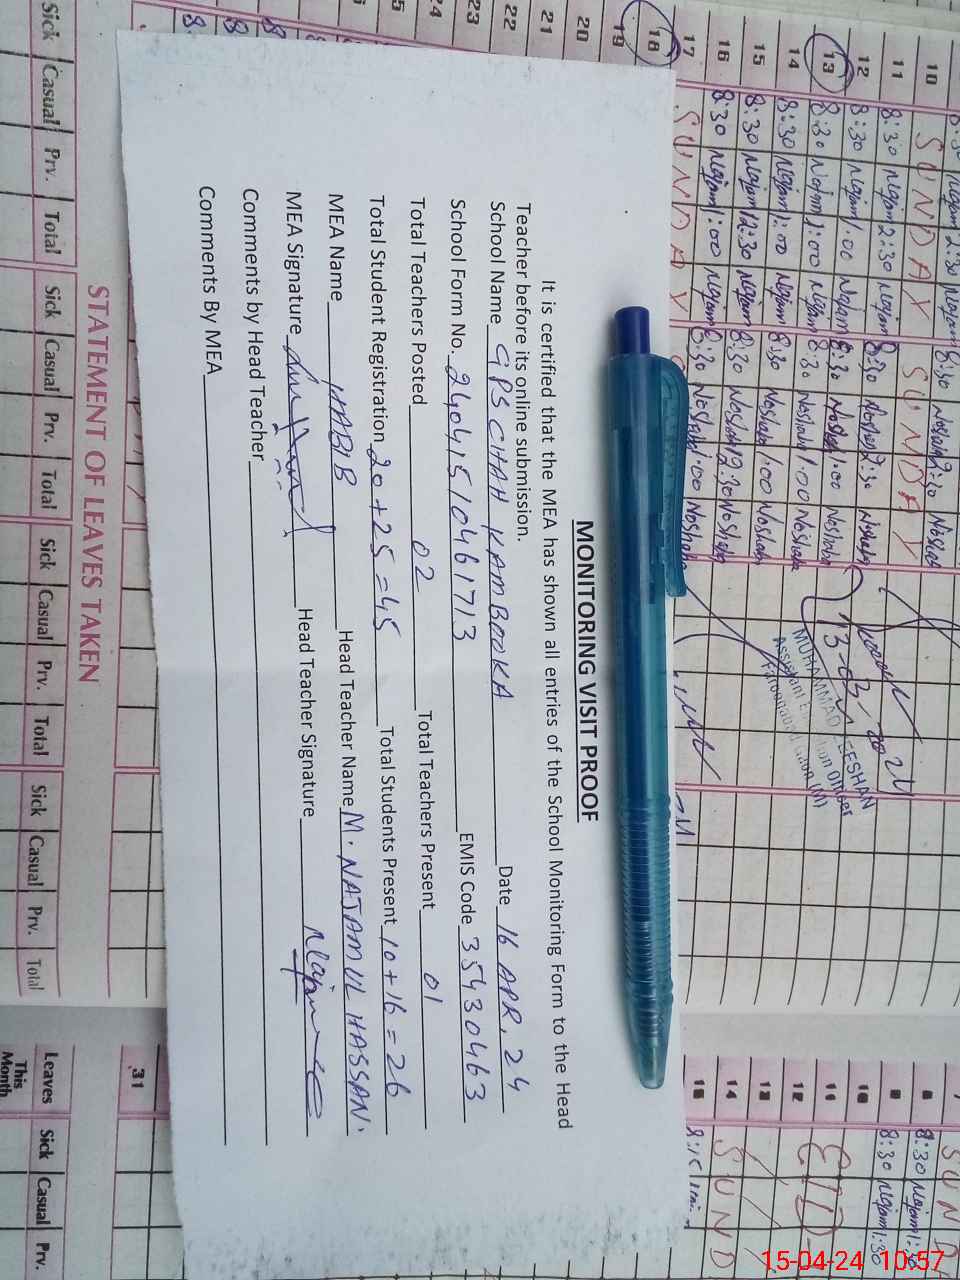 MONITORING VISIT PROOF
It is certified that the MEA has shown all entries of the School Monitoring Form to the Head
Teacher before its online submission.
School Name GPS CHAH KAMBOOKA Date 16 APR. 24
School Form No. 240415/10461713 EMIS Code 35430463
Total Teachers Posted 02 Total Teachers Present 01
Total Student Registration 20+25=45 Total Students Present 10+16=26
MEA Name HABIB Head Teacher Name M. NAJAM UL HASSAN.
MEA Signature Head Teacher Signature
Comments by Head Teacher
Comments By MEA
10 SUNDAY SUNDAY
11 8:30 Najam 2:30 Najam 8:30 Noshaba 2:30 Noshaba
12 8:30 Najam 1:00 Najam 8:30 Noshaba 1:00 Noshaba
13 8:30 Najam 1:00 Najam 8:30 Noshaba 1:00 Noshaba
14 8:30 Najam 1:00 Najam 8:30 Noshaba 1:00 Noshaba
15 8:30 Najam 12:30 Najam 8:30 Noshaba 12:30 Noshaba
16 8:30 Najam 1:00 Najam 8:30 Noshaba 1:00 Noshaba
17 SUNDAY
18
19
20
21
22
23
24
MUHAMMAD ZEESHAN
Assistant Education Officer
8 8:30 Najam 1:30
9 8:30 Najam 1:30
10
11 EID
12
13
14 SUND
15 8:15
31
STATEMENT OF LEAVES TAKEN
Sick Casual Prv. Total Sick Casual Prv. Total Sick Casual Prv. Total Sick Casual Prv. Total
Leaves This Month Sick Casual Prv.
15-04-24 10:57